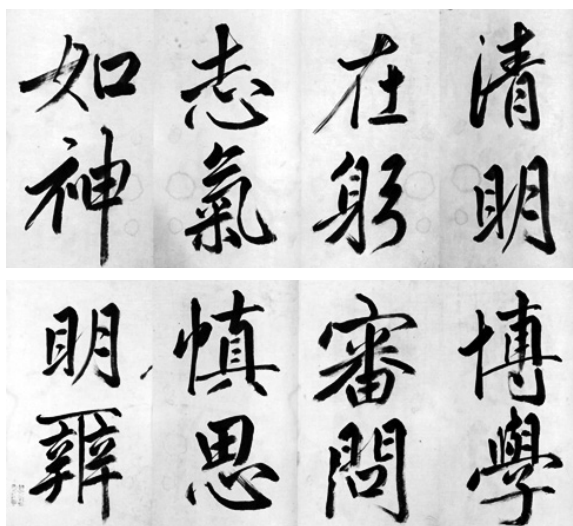 清明
在躬
志氣
如神
博學
審問
慎思
明辨